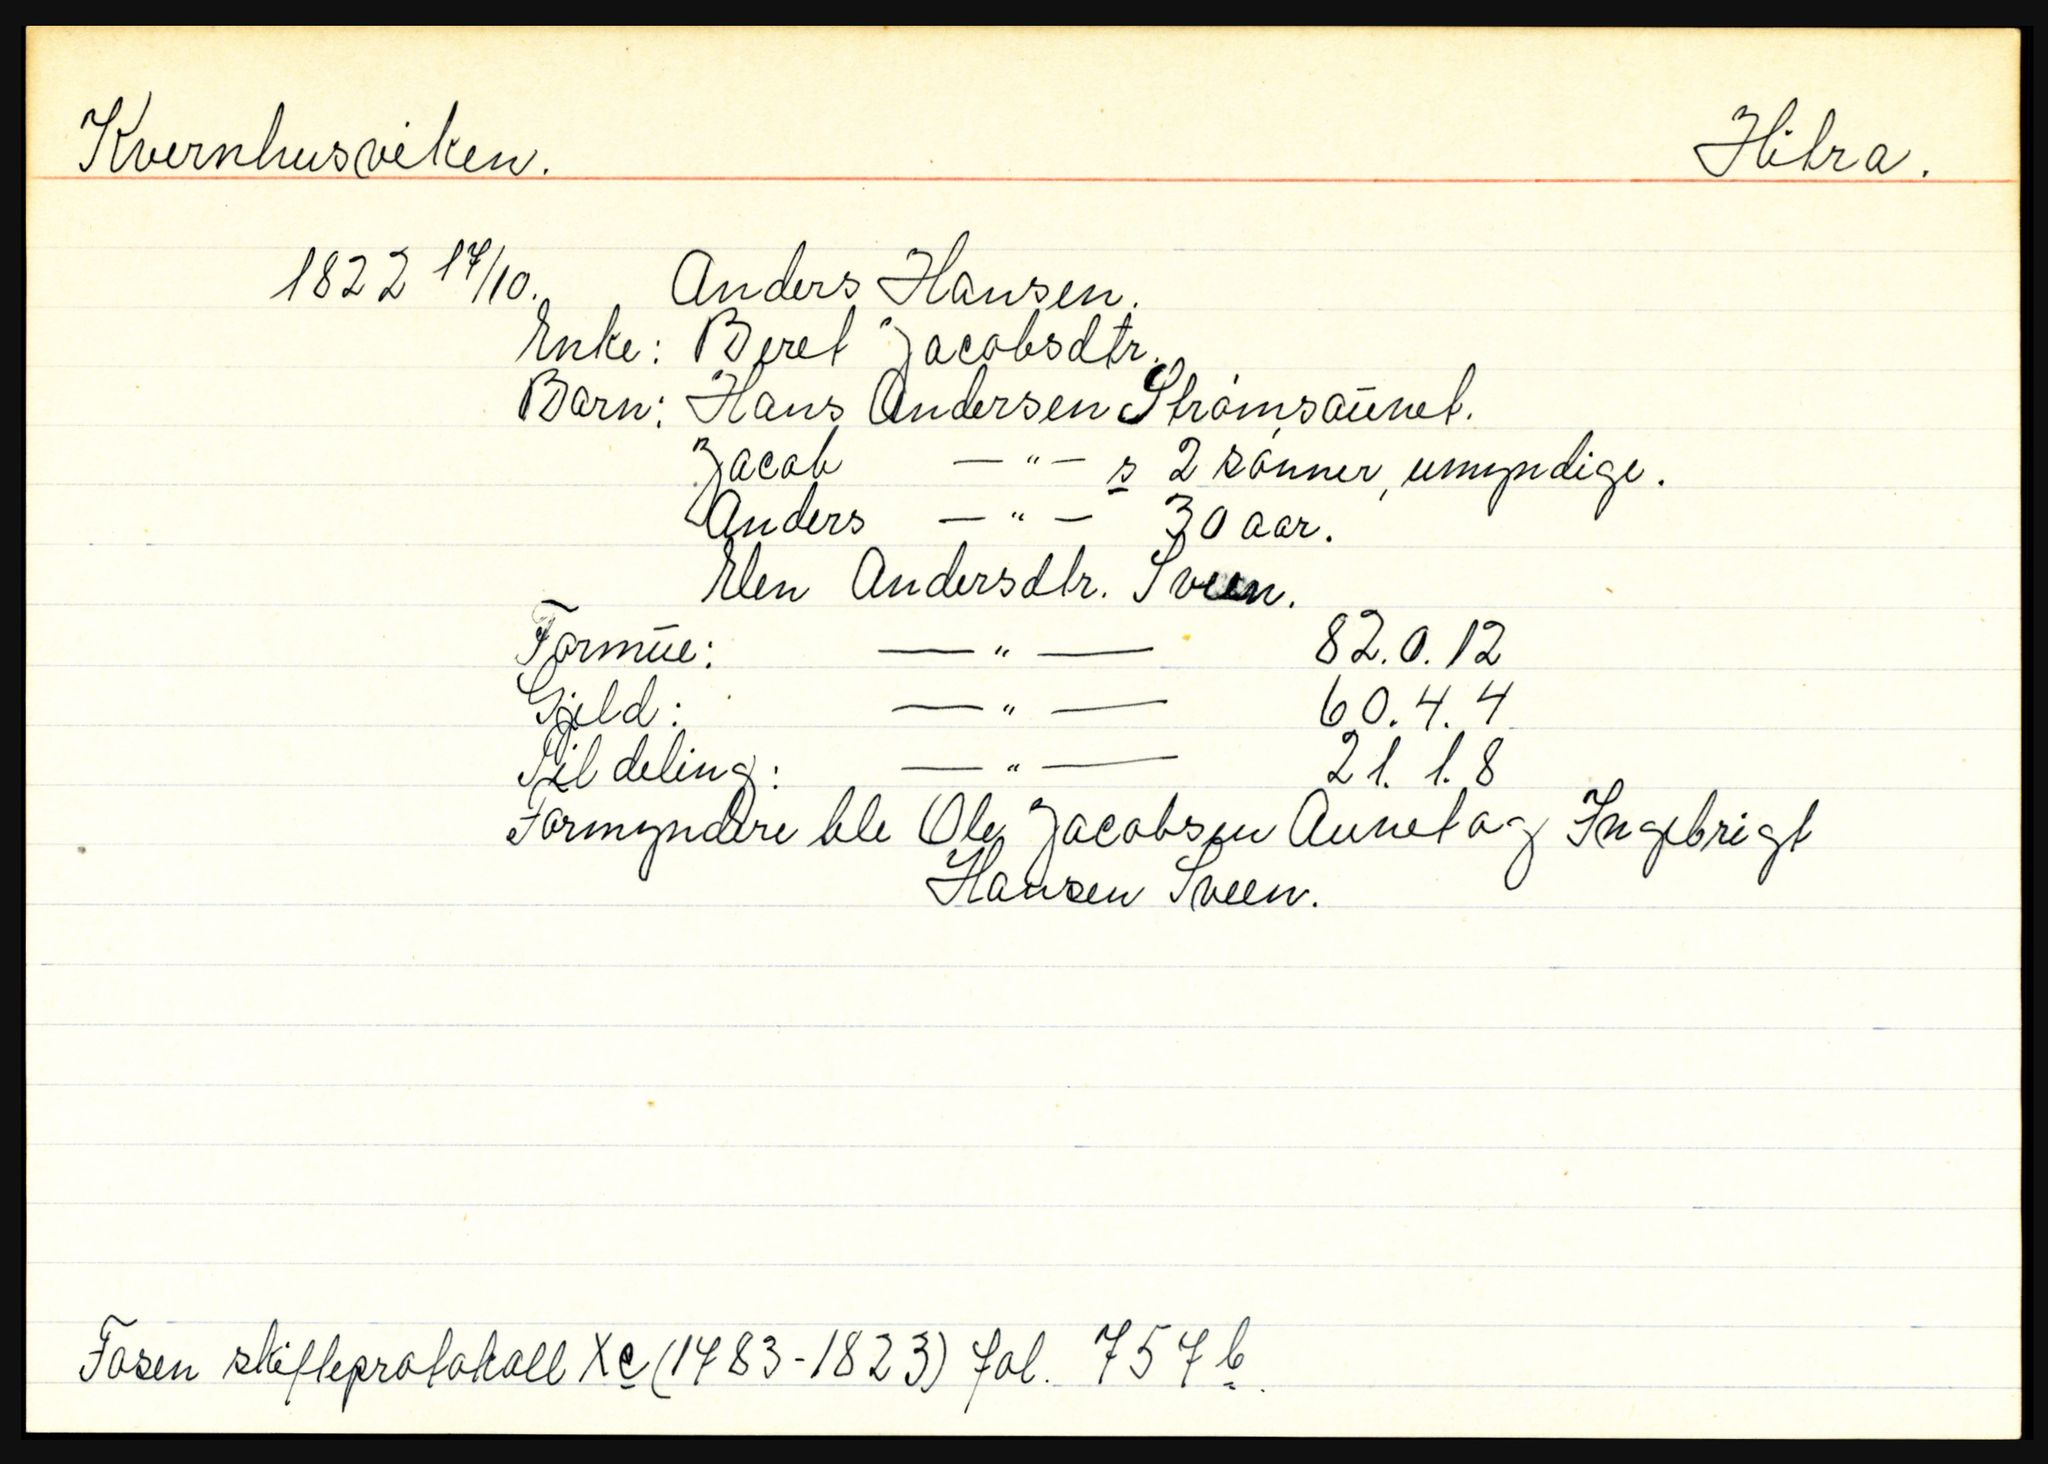 Kvernhusviken. Hitra.
1822 17/10. Anders Hansen.
Enke: Beret Jacobsdtr.
Barn: Hans Andersen Strømsaūnet.
Jacob —"— s 2 sønner, umyndige.
Anders —"— 30 aar.
Elen Andersdtr. Sveen.
Formūe: —"— 82.0.12
Gjeld: —"— 60.4.4
Til deling: —"— 21.1.8
Formyndere ble Ole Jacobsen Aunet og Ingebrigt
Hansen Sveen.
Fosen skifteprotokoll Xc (1783-1823) fol. 757b.